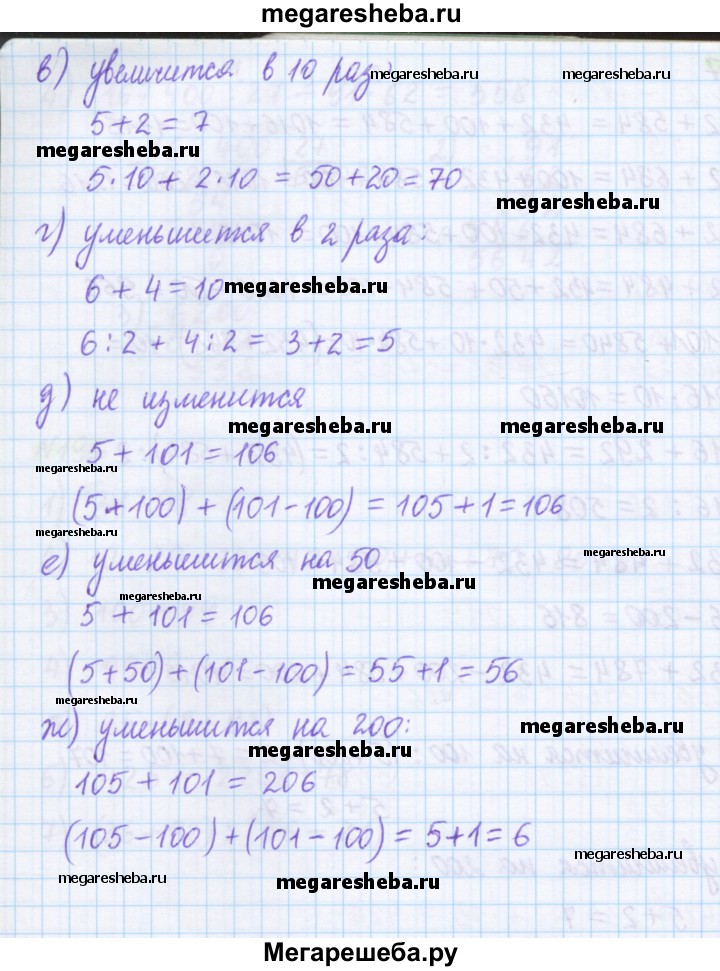 megaresheba.ru
в) увеличится в 10 раз: megaresheba.ru megaresheba.ru
5 + 2 = 7
megaresheba.ru
5 · 10 + 2 · 10 = 50 + 20 = 70
megaresheba.ru
г) уменьшится в 2 раза:
6 + 4 = 10 megaresheba.ru megaresheba.ru
6 : 2 + 4 : 2 = 3 + 2 = 5
д) не изменится
megaresheba.ru megaresheba.ru
5 + 101 = 106
megaresheba.ru
(5 + 100) + (101 - 100) = 105 + 1 = 106
megaresheba.ru
е) уменьшится на 50 megaresheba.ru
megaresheba.ru
megaresheba.ru
5 + 101 = 106
(5 + 50) + (101 - 100) = 55 + 1 = 56
megaresheba.ru
ж) уменьшится на 200: megaresheba.ru
megaresheba.ru
105 + 101 = 206
(105 - 100) + (101 - 100) = 5 + 1 = 6
megaresheba.ru
megaresheba.ru megaresheba.ru
Мегарешеба.ру